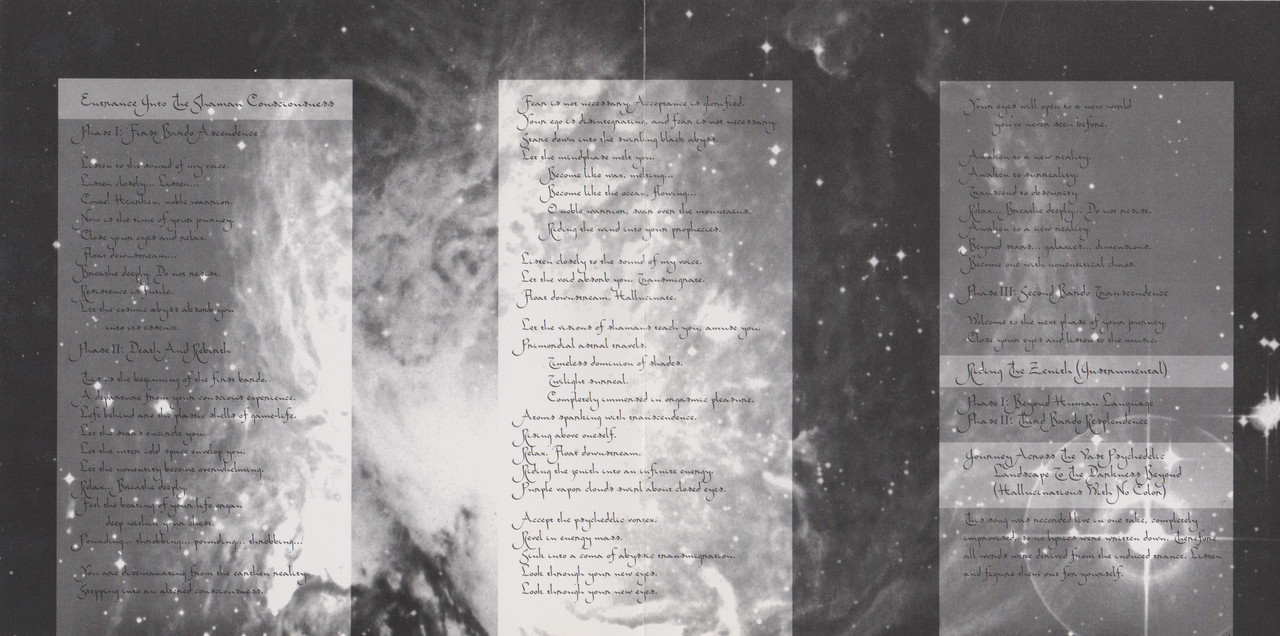 Entrance Into The Shaman Consciousness
Phase I: First Bardo Ascendence
Listen to the sound of my voice.
Listen closely... Listen...
Come! Hearken, noble warrior.
Now is the time of your journey.
Close your eyes and relax.
Float downstream...
Breathe deeply. Do not resist.
Resistence is futile.
Let the cosmic abyss absorb you
into its essence.
Phase II: Death And Rebirth
This is the beginning of the first bardo.
A departure from your conscious experience.
Left behind are the plastic shells of game-life.
Let the stars encircle you.
Let the utter cold space envelop you.
Let the nonentity become overwhelming.
Relax... Breathe deeply.
Feel the beating of your life organ
deep within your chest.
Pounding... throbbing... pounding... throbbing...
You are disemanating from the earthen reality.
Stepping into an altered consciousness.
Fear is not necessary. Acceptance is glorified.
Your ego is disintegrating, and fear is not necessary.
Stare down into the swirling black abyss.
Let the mindphase melt you.
Become like wax, melting...
Become like the ocean, flowing...
O noble warrior, soar over the mountains.
Riding the wind into your prophecies.
Listen closely to the sound of my voice.
Let the void absorb you. Transmigrate.
Float downstream. Hallucinate.
Let the visions of shamans teach you, amuse you.
Primordial astral travels.
Timeless dominion of shades.
Twilight surreal.
Completely immersed in orgasmic pleasure.
Atoms sparking with transcendence.
Rising above oneself.
Relax. Float downstream.
Riding the zenith into an infinite energy.
Purple vapor clouds swirl about closed eyes.
Accept the psychedelic vortex.
Revel in energy mass.
Sink into a coma of abyssic transmigration.
Look through your new eyes.
Look through your new eyes.
Your eyes will open to a new world
you've never seen before.
Awaken to a new reality.
Awaken to surreality.
Transcend to obscurity.
Relax... Breathe deeply... Do not resist.
Awaken to a new reality.
Beyond stars... galaxies... dimensions.
Become one with nonentitical chaos.
Phase III: Second Bardo Transcendence
Welcome to the next phase of your journey.
Close your eyes and listen to the music.
Riding The Zenith (Instrumental)
Phase I: Beyond Human Language
Phase II: Third Bardo Resplendence
Journey Across The Vast Psychedelic
Landscape To The Darkness Beyond
(Hallucinations With No Color)
This song was recorded live in one take, completely
improvised, so no lyrics were written down. Therefore
all words were derived from the induced trance. Listen
and figure them out for yourself.